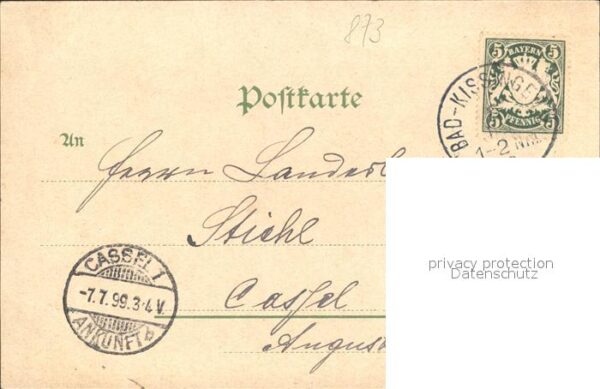 873
5 BAYERN 5
5 PFENNIG 5
BAD-KISSINGEN
1-2 Nm.
Postkarte
An
Herrn
Stiehl
Cassel
August
CASSEL 1
-7.7.99.3-4 V.
ANKUNFT b
privacy protection
Datenschutz